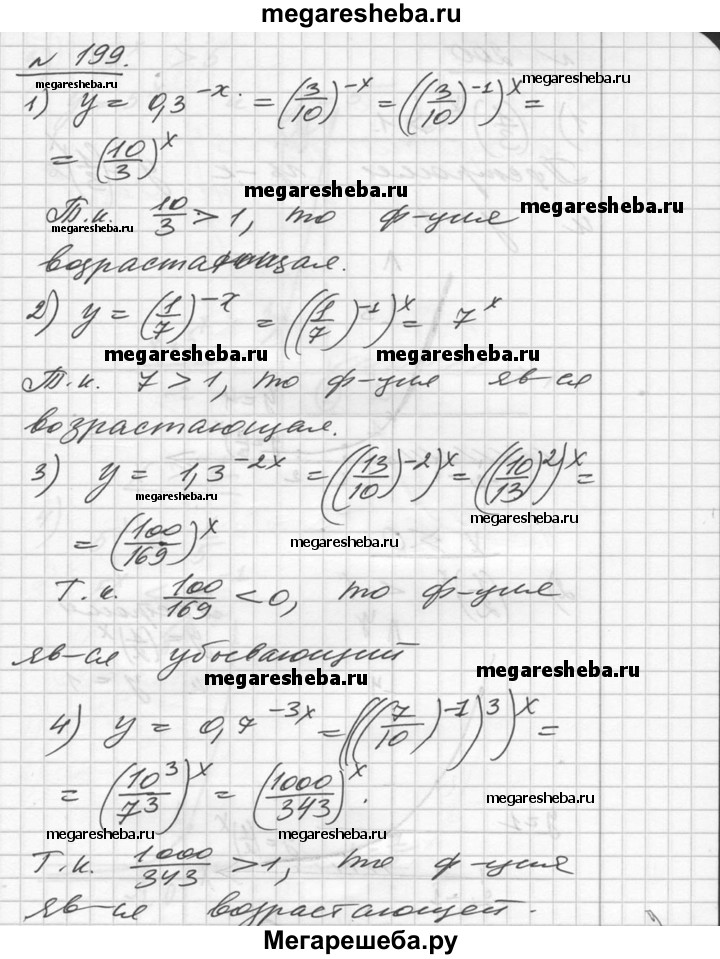 megaresheba.ru
№ 199.
megaresheba.ru
megaresheba.ru
1) y = 0,3^{-x} = (3/10)^{-x} = ((3/10)^{-1})^x =
= (10/3)^x
megaresheba.ru
megaresheba.ru
Т.к. 10/3 > 1, то ф-ция
возрастающая.
2) y = (1/7)^{-x} = ((1/7)^{-1})^x = 7^x
megaresheba.ru
megaresheba.ru
Т.к. 7 > 1, то ф-ция яв-ся
возрастающая.
3) y = 1,3^{-2x} = ((13/10)^{-2})^x = ((10/13)^2)^x =
megaresheba.ru
megaresheba.ru
= (100/169)^x
megaresheba.ru
Т.к. 100/169 < 0, то ф-ция
яв-ся убывающий
megaresheba.ru
megaresheba.ru
4) y = 0,7^{-3x} = (((7/10)^{-1})^3)^x =
= (10^3/7^3)^x = (1000/343)^x.
megaresheba.ru
megaresheba.ru
megaresheba.ru
Т.к. 1000/343 > 1, то ф-ция
яв-ся возрастающей.
Мегарешеба.ру